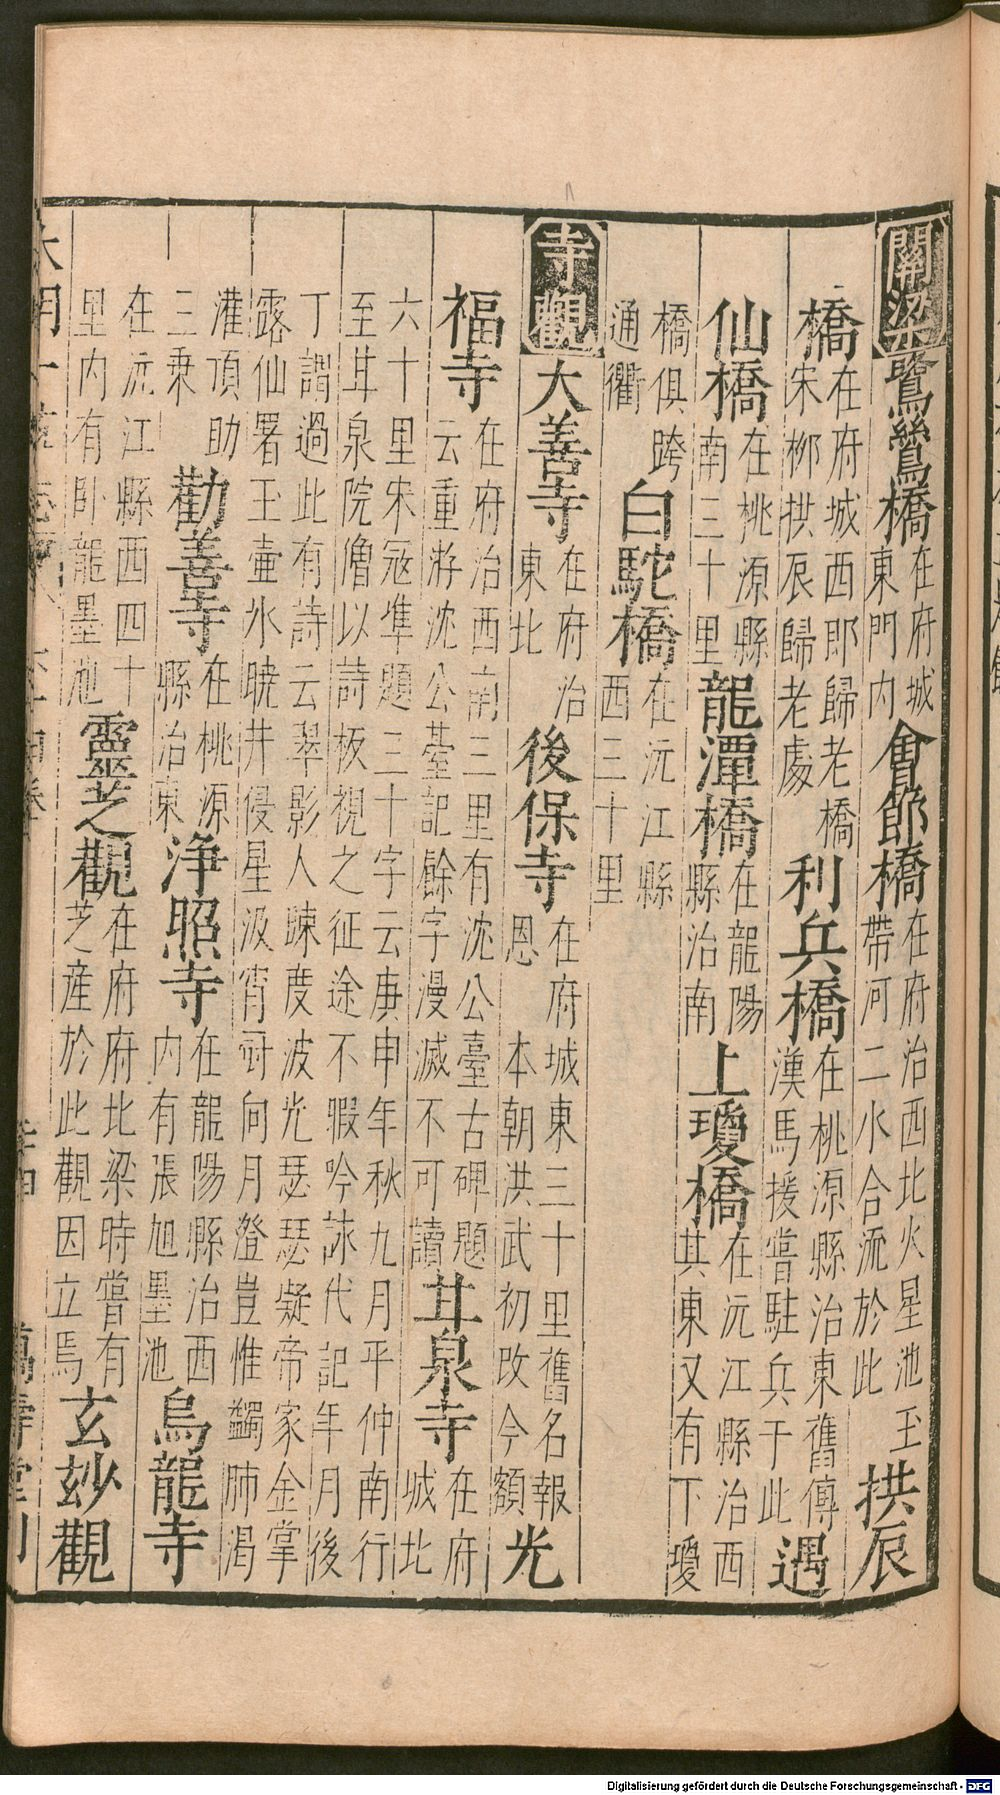 關梁鷺鷥橋在府城東門內會節橋在府治西北火星池玉帶河二水合流於此拱辰
橋在府城西即歸老橋宋柳拱辰歸老處利兵橋在桃源縣治東舊傳漢馬援嘗駐兵于此遇
仙橋在桃源縣南三十里龍潭橋在龍陽縣治南上瓊橋在沅江縣治西其東又有下瓊
橋俱跨通衢白駝橋在沅江縣西三十里
寺觀大善寺在府治東北後保寺在府城東三十里舊名報恩本朝洪武初改今額光
福寺在府治西南三里有沈公臺古碑題云重游沈公臺記餘字漫滅不可讀甘泉寺在府城北
六十里宋冦準題二十字云庚申年秋九月平仲南行至甘泉院僧以詩板視之征途不暇吟詠代記年月後
丁謂過此有詩云翠影人踈度波光瑟瑟凝帝家金掌露仙署玉壷氷曉井侵星汲宵向月澄豈惟蠲肺渴
灌頂助三乘勸善寺在桃源縣治東浄照寺在龍陽縣治西內有張旭墨池烏龍寺
在沅江縣西四十里內有卧龍墨池靈芝觀在府府北梁時嘗有芝産於此觀因立焉玄玅觀
萬壽堂刊
Digitalisierung gefördert durch die Deutsche Forschungsgemeinschaft - DFG